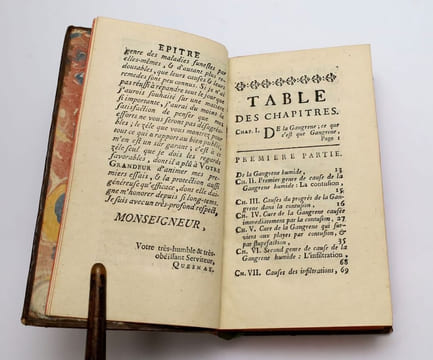 EPITRE
genre des maladies funestes par
elles-mêmes, & d'autant plus re-
doutables, que leurs causes & leurs
remedes sont peu connus. Si je n'ai
pas réussi à répandre tout le jour que
j'aurois souhaité sur une matiere
si importante, j'aurai du moins la
satisfaction de penser que mes
efforts ne vous seront pas désagréa-
bles; le zéle que vous montrez pour
tout ce qui a rapport au bien public,
m'en est un sûr garant; c'est à ce
zéle seul que je dois les regards
favorables, dont il a plû à VOTRE
GRANDEUR d'animer mes pre-
miers essais, & la protection aussi
généreuse qu'efficace, dont elle dai-
gne m'honorer depuis si long-tems.
Je suis avec un très-profond respect,
MONSEIGNEUR,
Votre très-humble & très-
obéissant Serviteur,
QUESNAY,
TABLE
DES CHAPITRES.
CHAP. I. DE la Gangrene; ce que
c'est que Gangrene,
Page 1
PREMIERE PARTIE.
De la Gangrene humide, 13
CH. II. Premier genre de cause de la
Gangrene humide: La contusion,
15
CH. III. Causes du progrès de la Gan-
grene dans la contusion, 16
CH. IV. Cure de la Gangrene causée
immédiatement par la contusion, 27
CH. V. Cure de la Gangrene qui sur-
vient aux playes par contusion, &
par stupefaction, 35
CH. VI. Second genre de cause de la
Gangrene humide: L'infiltration,
68
CH. VII. Causes des infiltrations, 69